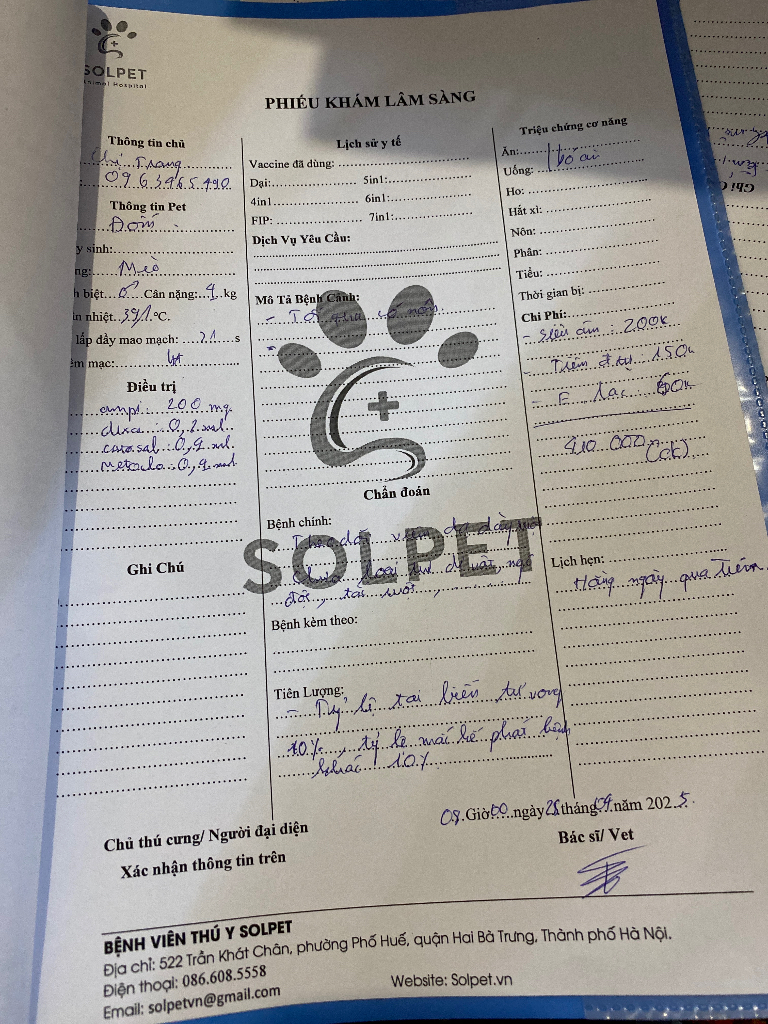 SOLPET
Animal Hospital
PHIẾU KHÁM LÂM SÀNG
Thông tin chủ
Chị Trang
0963465490
Thông tin Pet
Đốm
y sinh:
ng: Mèo
h biệt: ♂ Cân nặng: 4 kg
n nhiệt: 39,1 °C.
lấp đầy mao mạch: 21 s
êm mạc:
Điều trị
ampi: 200 mg
: 0,2 ml
catosal: 0,9 ml
metoclo: 0,9 ml
Ghi Chú
Lịch sử y tế
Vaccine đã dùng:
Dại: 5in1:
4in1 6in1:
FIP: 7in1:
Dịch Vụ Yêu Cầu:
Mô Tả Bệnh Cảnh:
- Tối qua có nôn
-
Chẩn đoán
Bệnh chính:
Theo dõi viêm dạ dày ruột
Chưa loại trừ dị vật, ngộ
độc, tắc ruột,
Bệnh kèm theo:
Tiên Lượng:
- Tỷ lệ tai biến tử vong
10%, tỷ lệ mắc kế phát bệnh
khác 10%
Triệu chứng cơ năng
Ăn: bỏ ăn
Uống:
Ho:
Hắt xì:
Nôn:
Phân:
Tiểu:
Thời gian bị:
Chi Phí:
- siêu âm: 200k
- Tiêm đ.trị 150k
- F lac 60k
410 000 (ck)
Lịch hẹn:
Hàng ngày qua tiêm
08 Giờ 00 ngày 28 tháng 09 năm 2025.
Chủ thú cưng/ Người đại diện
Xác nhận thông tin trên
Bác sĩ/ Vet
BỆNH VIÊN THÚ Y SOLPET
Địa chỉ: 522 Trần Khát Chân, phường Phố Huế, quận Hai Bà Trưng, Thành phố Hà Nội.
Điện thoại: 086.608.5558
Website: Solpet.vn
Email: solpetvn@gmail.com
SOLPET